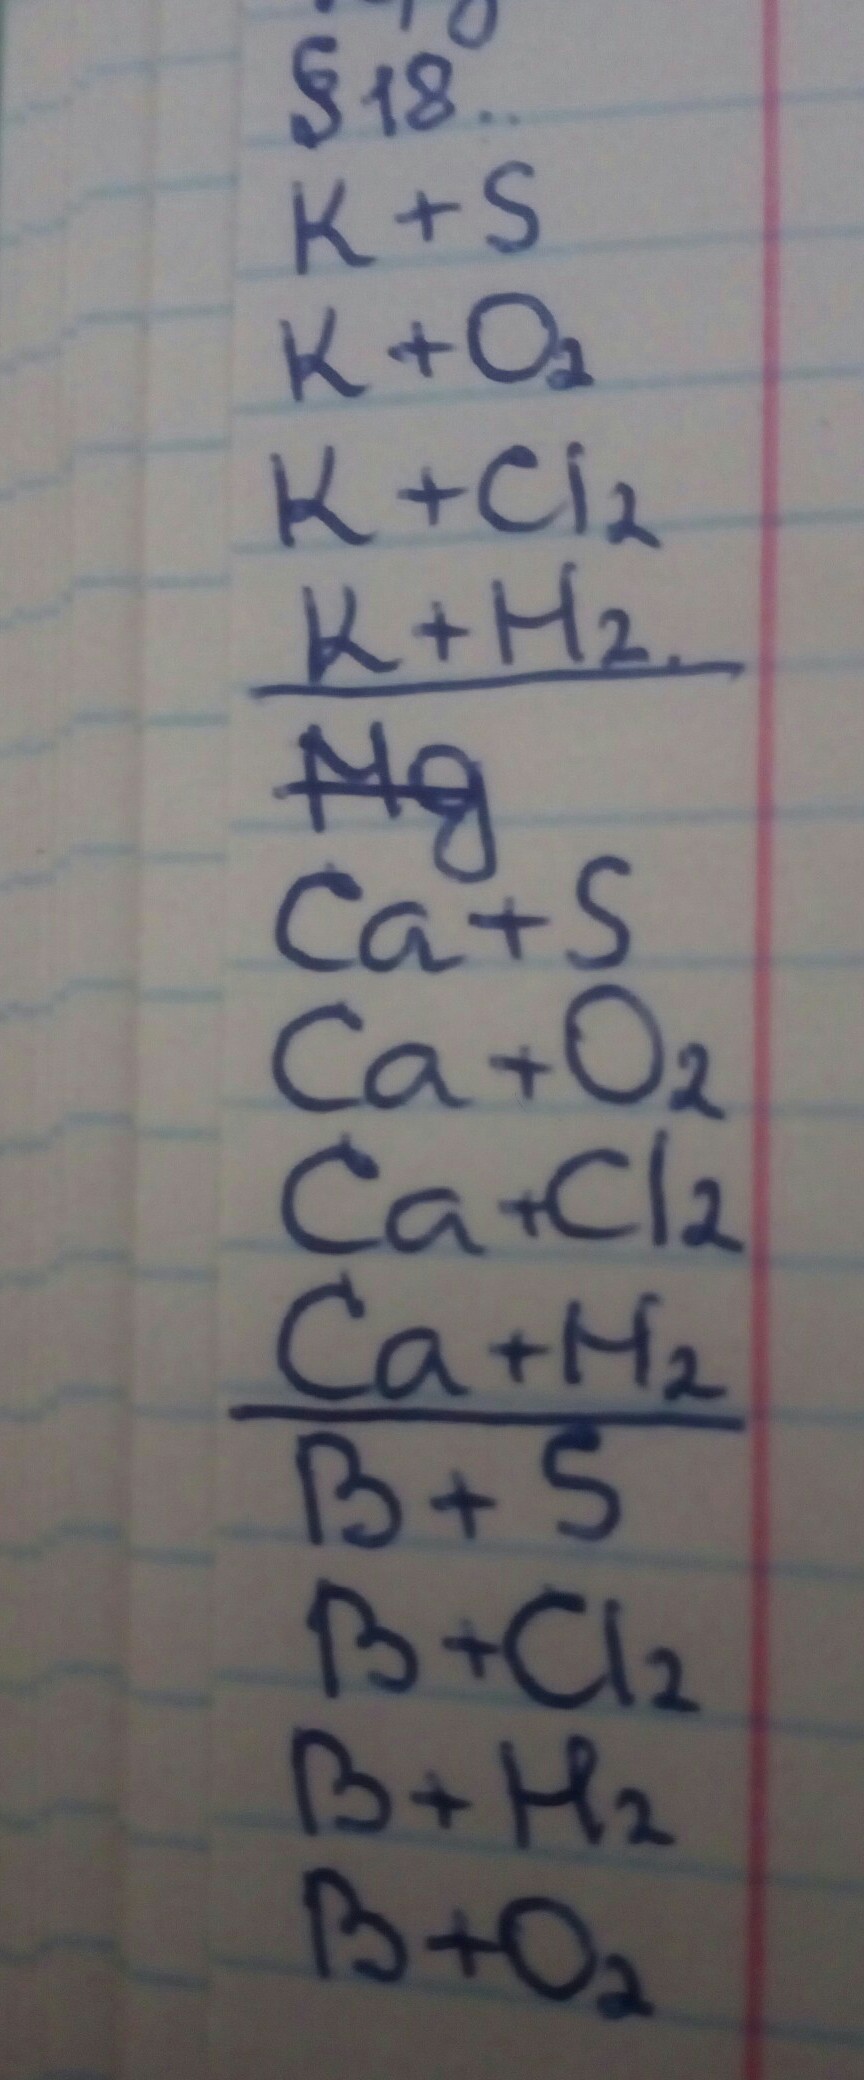 § 18.
K + S
K + O2
K + Cl2
K + H2.
Mg
Ca + S
Ca + O2
Ca + Cl2
Ca + H2
B + S
B + Cl2
B + H2
B + O2